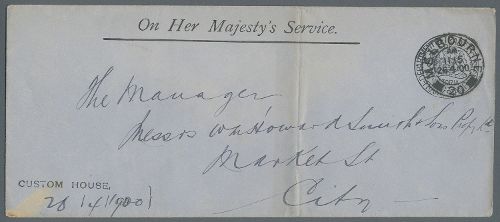 On Her Majesty's Service.
MELBOURNE
1115
26·4·00
20
The Manager
Messrs Wm Howard Smith & Sons Propy Ltd
Market St
City
CUSTOM HOUSE,
26/4/1900